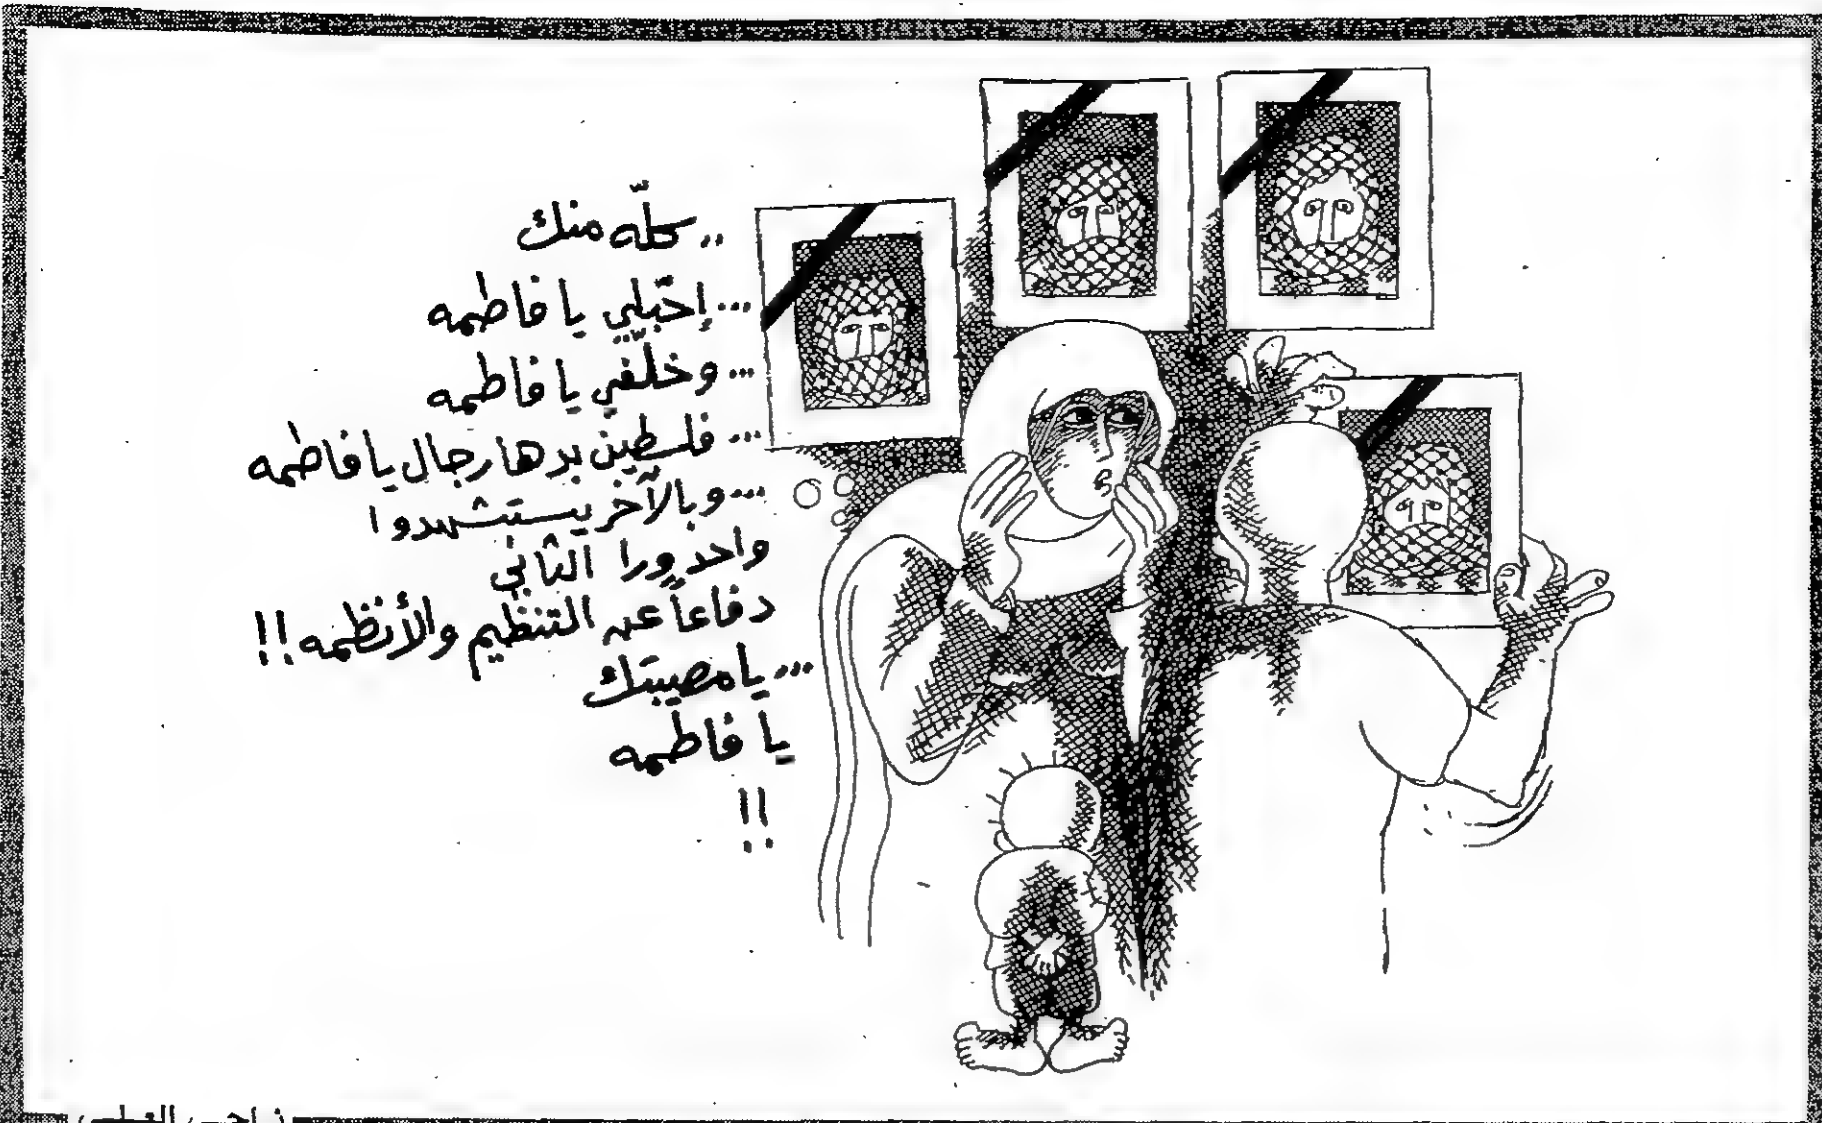 .. كلّه منك
... إحبلي يا فاطمه
... وخلّفي يا فاطمه
... فلسطين بدها رجال يا فاطمه
... وبالآخر يستشهدوا
واحد ورا الثاني
دفاعاً عن التنظيم والأنظمه !!
... يا مصيبتك
يا فاطمه
!!
ناجي العلي